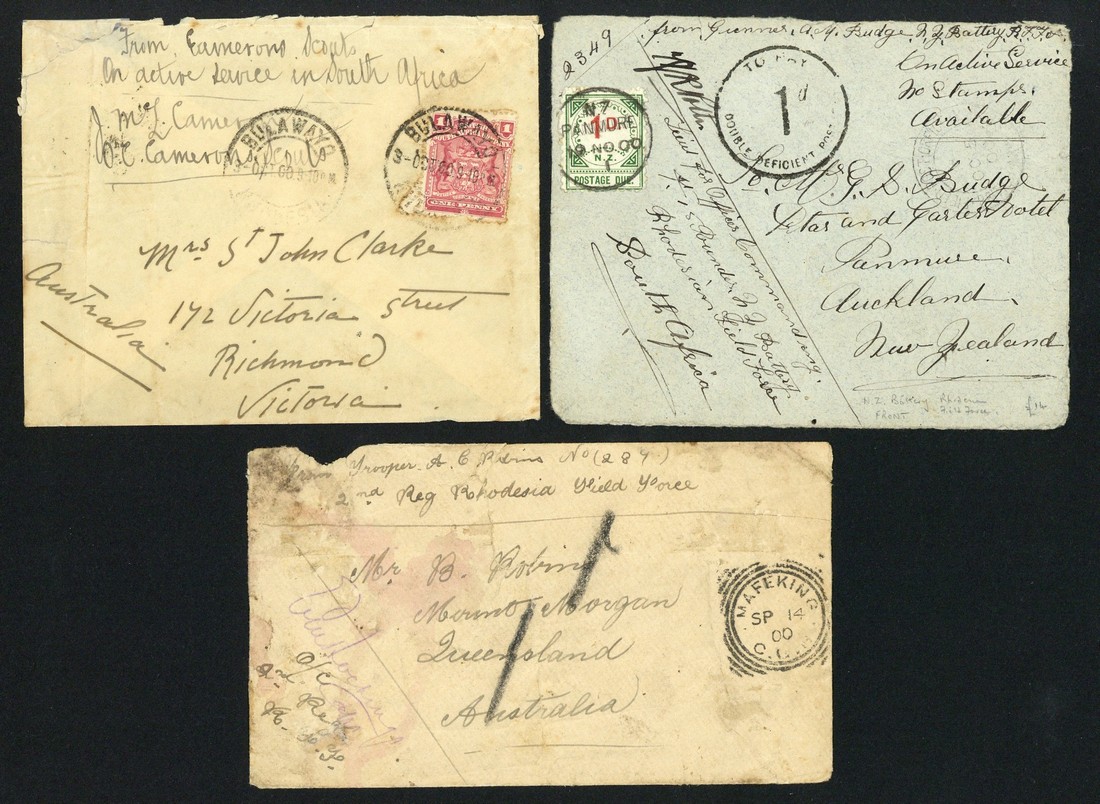 From Camerons Scouts
On active service in South Africa
J. McL Cameron
O.C. Camerons Scouts
BULAWAYO
BULAWAYO
1 1
ONE PENNY
Mrs St John Clarke
172 Victoria Street
Richmond
Victoria
Australia
2349
from Gunner A.G. Budge N.Z. Battery R.F.F.
On Active Service
No Stamps
Available
TO PAY
1d
DOUBLE DEFICIENT POST
NZ
PANMURE
19 NO 00
1
1D
N.Z.
POSTAGE DUE.
To Mr G. S. Budge
Star and Garter Hotel
Panmure,
Auckland,
New Zealand
Lieut for Officer Commanding.
15 Pounder N.Z Battery
Rhodesian Field Force
South Africa
N.Z. Battery Rhodesian
FRONT Field Force
£16
from Trooper A. C Robins No (289)
2nd Reg Rhodesia Field Force
Mr B. Robins
Mount Morgan
Queensland
Australia
MAFEKING
SP 14
00
C.G.H
O/C
2nd Regt
R. F. F.